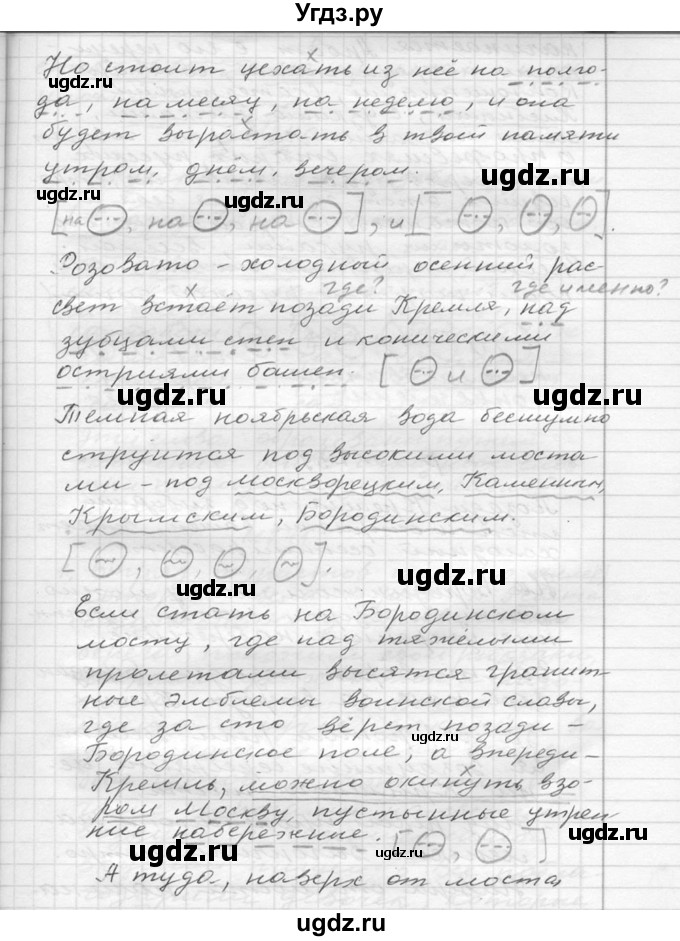 Угдз.ру
Но стоит уехать из неё на полго-
да, на месяц, на неделю, и она
будет вырастать в твоей памяти
утром, днём, вечером.
ugdz.ru ugdz.ru ugdz.ru
[на , на , на ], и [ , , ].
Розовато-холодный осенний рас-
где? где именно?
свет встаёт позади Кремля, над
ugdz.ru ugdz.ru
зубцами стен и коническими
остриями башен. [ и ]
ugdz.ru ugdz.ru
Темная ноябрьская вода бесшумно
струится под высокими моста-
ugdz.ru ugdz.ru
ми - под Москворецким, Каменным,
Крымским, Бородинским.
[ , , , ].
ugdz.ru ugdz.ru
Если стать на Бородинском
мосту, где над тяжёлыми
ugdz.ru ugdz.ru
пролетами высятся гранит-
ные эмблемы воинской славы,
где за сто вёрст позади -
ugdz.ru ugdz.ru
Бородинское поле, а впереди -
Кремль, можно окинуть взо-
ugdz.ru ugdz.ru
ром Москву, пустынные утрен-
ние набережные. [ , ]
ugdz.ru ugdz.ru
А туда, наверх от моста,
ugdz.ru ugdz.ru